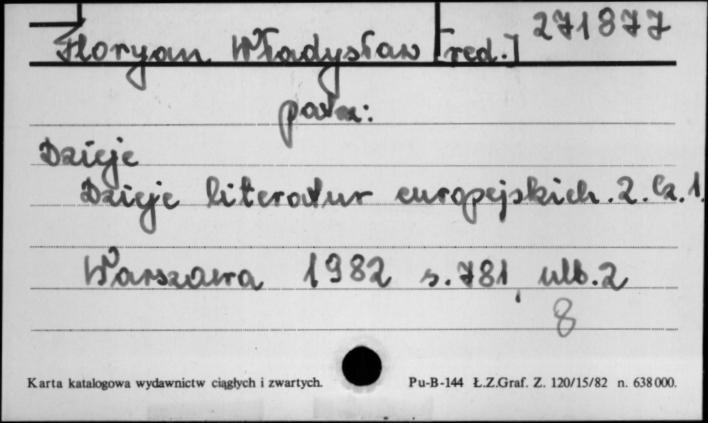 271877
Floryan Władysław [red.]
patrz:
Dzieje
Dzieje literatur europejskich. 2. Cz. 1.
Warszawa 1982 s. 781, nlb. 2
8
Karta katalogowa wydawnictw ciągłych i zwartych. Pu-B-144 Ł.Z.Graf. Z. 120/15/82 n. 638000.